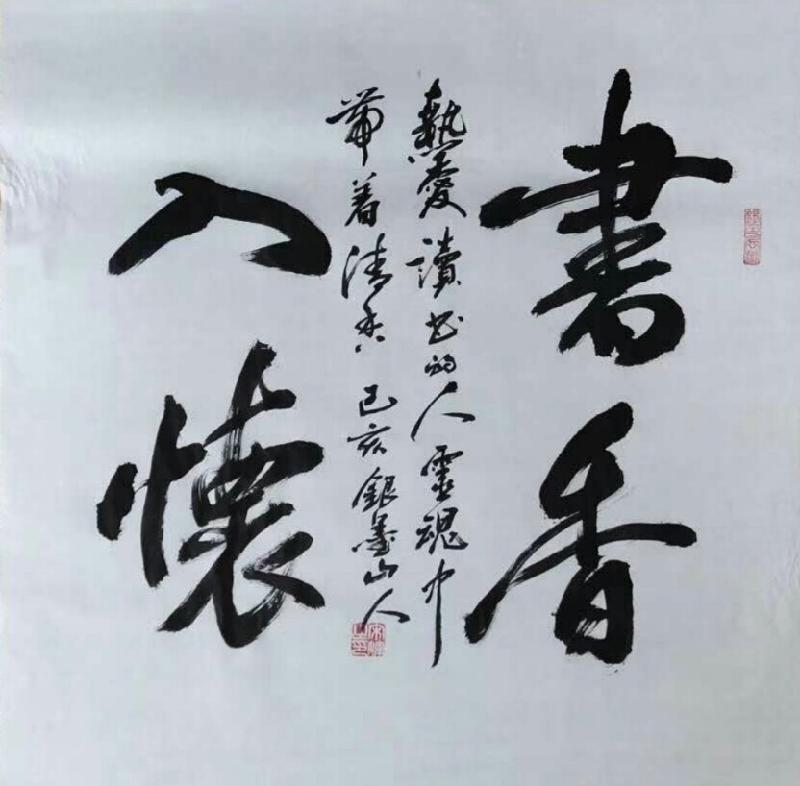 書香
熱愛讀书的人靈魂中
帶着清香 己亥 銀墨山人
入懷